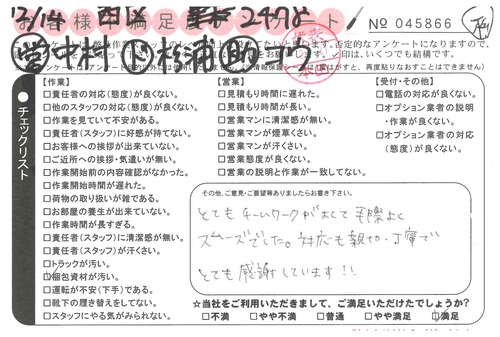 お客様満足度
№ 045866
チェックリスト
【作業】
□責任者の対応(態度)が良くない。
□他のスタッフの対応(態度)が良くない。
□作業を見ていて不安がある。
□責任者(スタッフ)に好感が持てない。
□お客様への挨拶が出来ていない。
□ご近所への挨拶・気遣いが無い。
□作業開始前の内容確認がなかった。
□作業開始時間が遅れた。
□荷物の取り扱いが雑である。
□お部屋の養生が出来ていない。
□作業時間が長すぎる。
□責任者(スタッフ)に清潔感が無い。
□責任者(スタッフ)が汗くさい。
□トラックが汚い。
□梱包資材が汚い。
□運転が不安(下手)である。
□靴下の履き替えをしてない。
□スタッフにやる気がみられない。
【営業】
□見積もり時間に遅れた。
□見積もり時間が長い。
□営業マンに清潔感が無い。
□営業マンが煙草くさい。
□営業マンが汗くさい。
□営業態度が良くない。
□営業の説明と作業が一致してない。
【受付・その他】
□電話の対応が良くない。
□オプション業者の説明
・作業が良くない。
□オプション業者の対応
(態度)が良くない。
その他、ご意見・ご要望等ありましたらお書き下さい。
とてもチームワークがよくて手際よく
スムーズでした。対応も親切・丁寧で
とても感謝しています!!
☆当社をご利用いただきまして、ご満足いただけましたでしょうか?
□不満 □やや不満 □普通 □やや満足 □満足